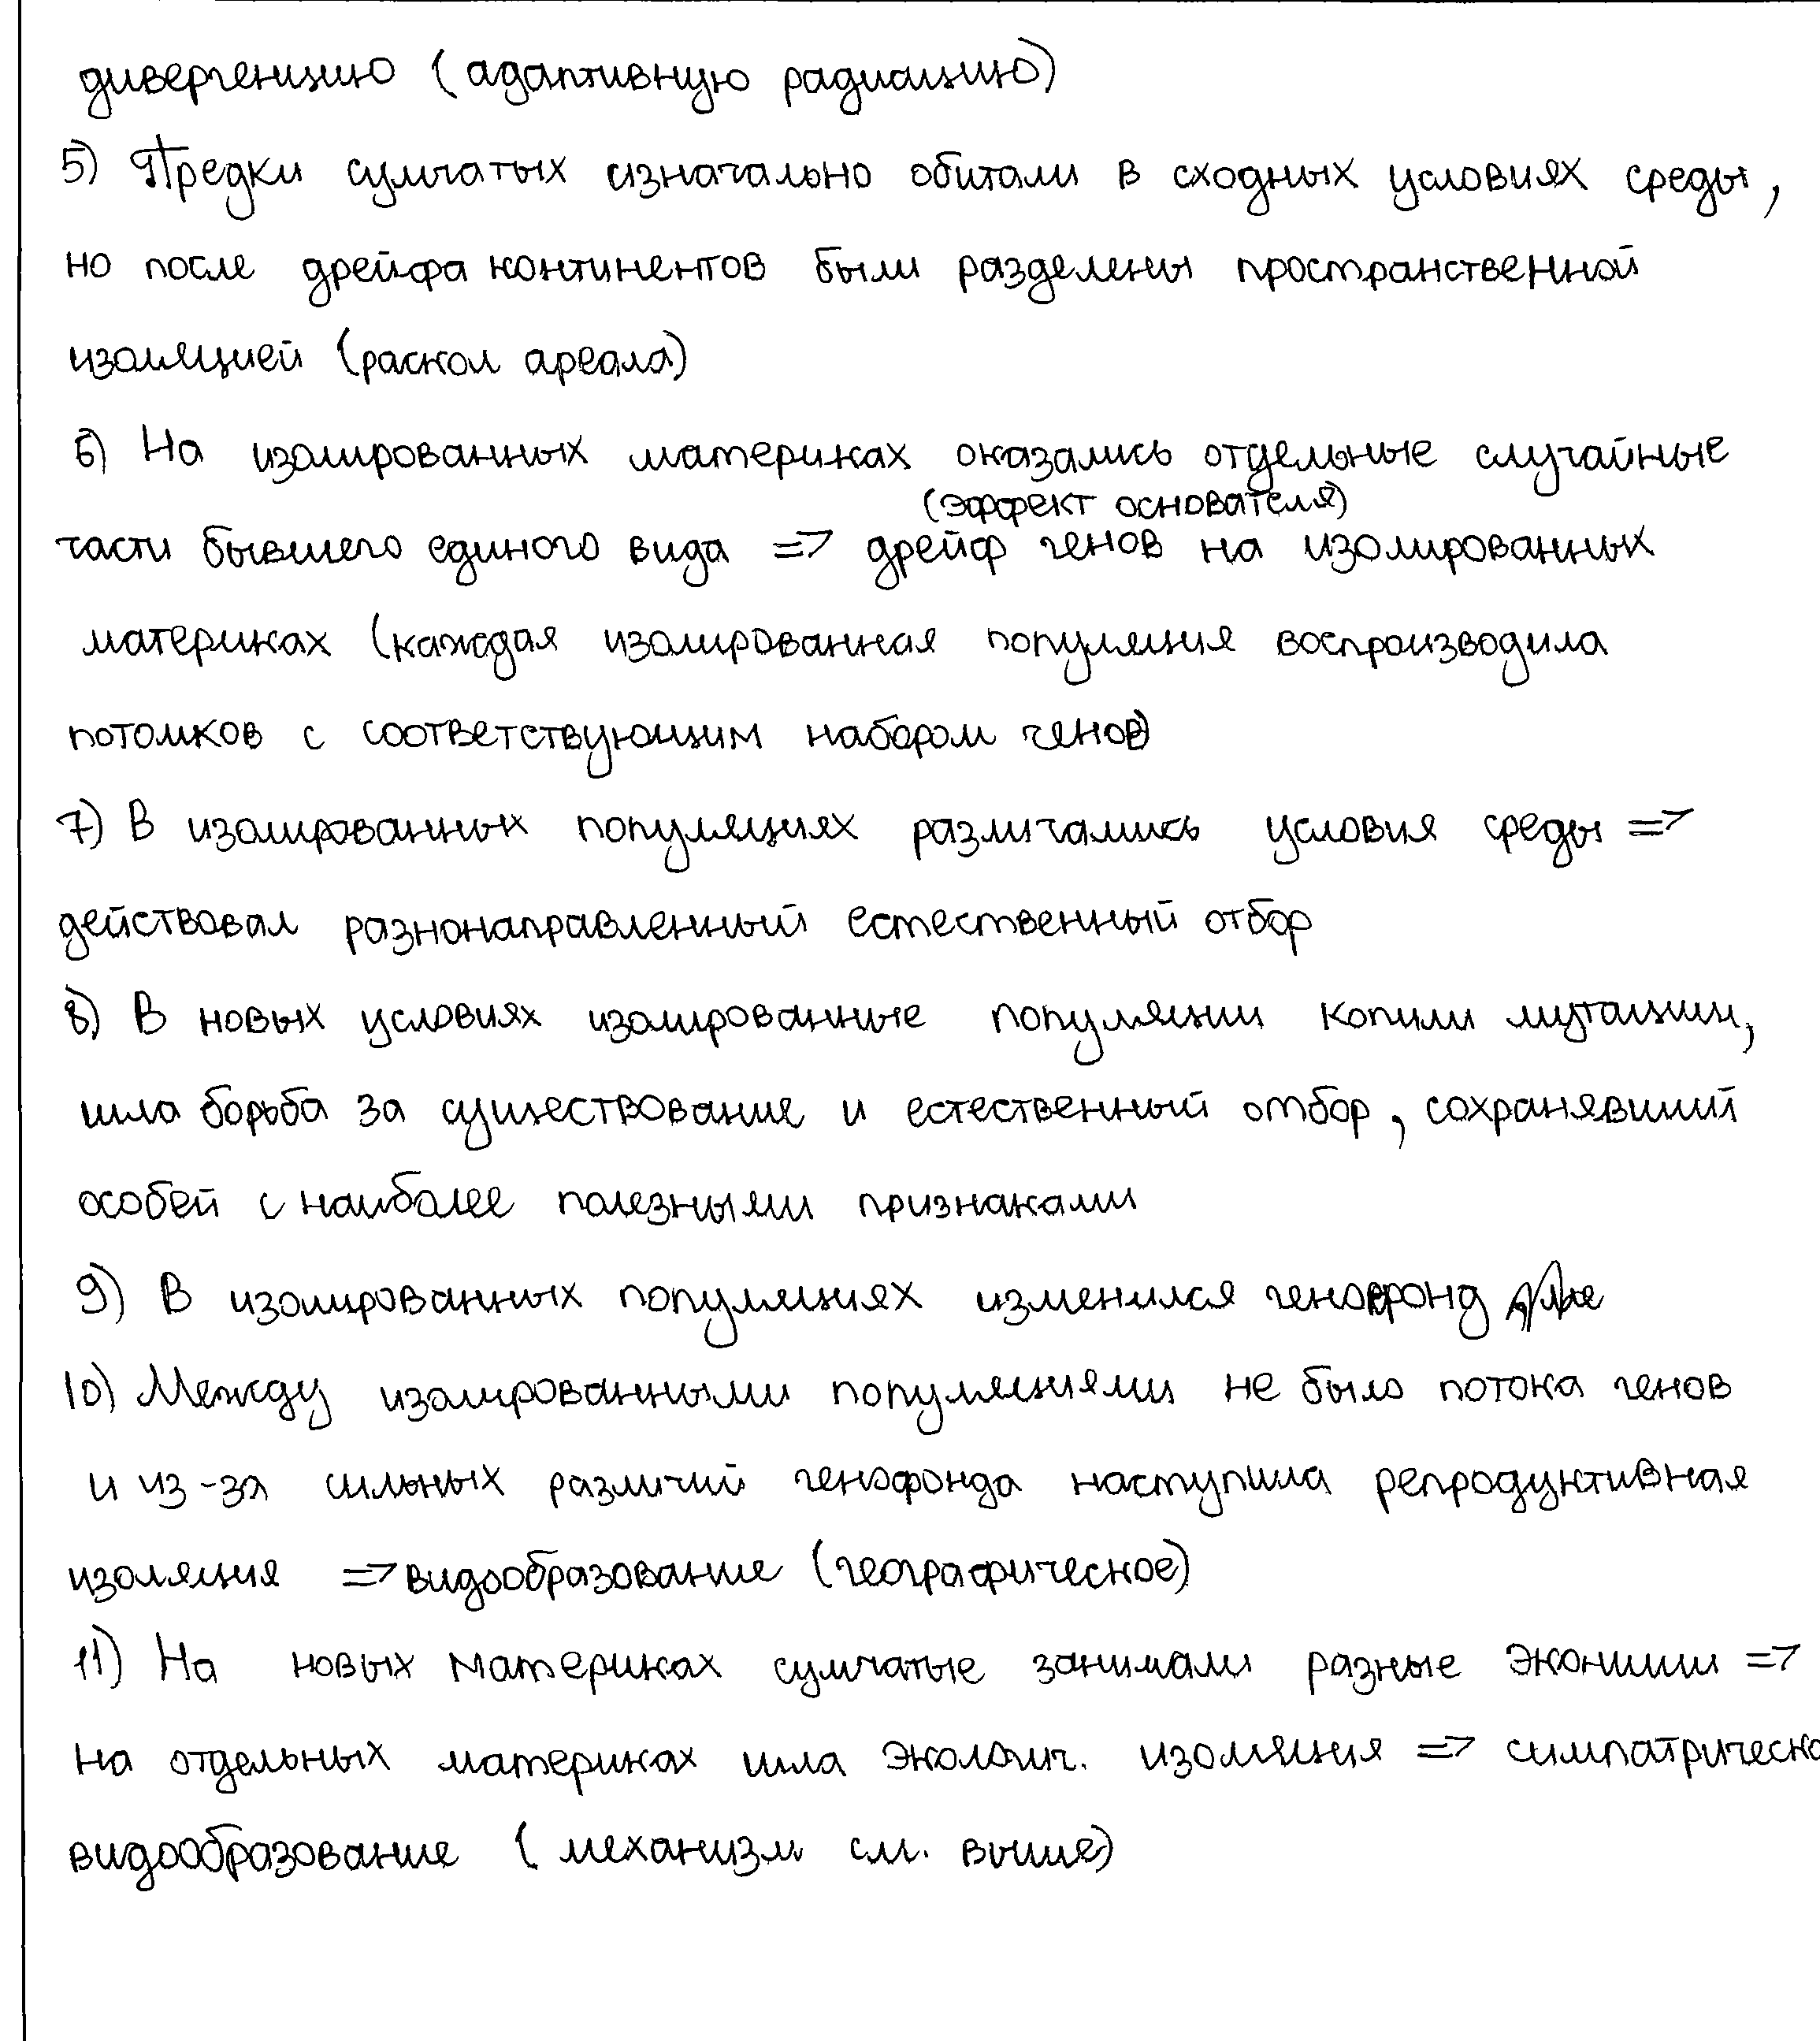 дивергенцию (адаптивную радиацию)
5) Предки сумчатых изначально обитали в сходных условиях среды,
но после дрейфа континентов были разделены пространственной
изоляцией (раскол ареала)
6) На изолированных материках оказались отдельные случайные
(эффект основателя)
части бывшего единого вида => дрейф генов на изолированных
материках (каждая изолированная популяция воспроизводила
потомков с соответствующим набором генов)
7) В изолированных популяциях различались условия среды =>
действовал разнонаправленный естественный отбор
8) В новых условиях изолированные популяции копили мутации,
шла борьба за существование и естественный отбор, сохранявший
особей с наиболее полезными признаками
9) В изолированных популяциях изменился генофонд
10) Между изолированными популяциями не было потока генов
и из-за сильных различий генофонда наступила репродуктивная
изоляция => видообразование (географическое)
11) На новых материках сумчатые занимали разные экониши =>
на отдельных материках шла экологич. изоляция => симпатрическо
видообразование (механизм см. выше)